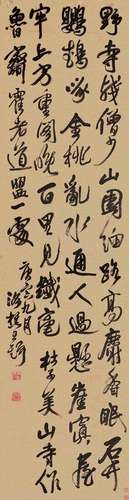 野寺殘僧少山園細路高麝香眠石竹
鸚鵡啄金桃亂水通人過懸崖置屋
牢上方重閣晚百里見纖毫 杜美山寺作
魯齋霍老道盟一處
庚寅九月 王鐸